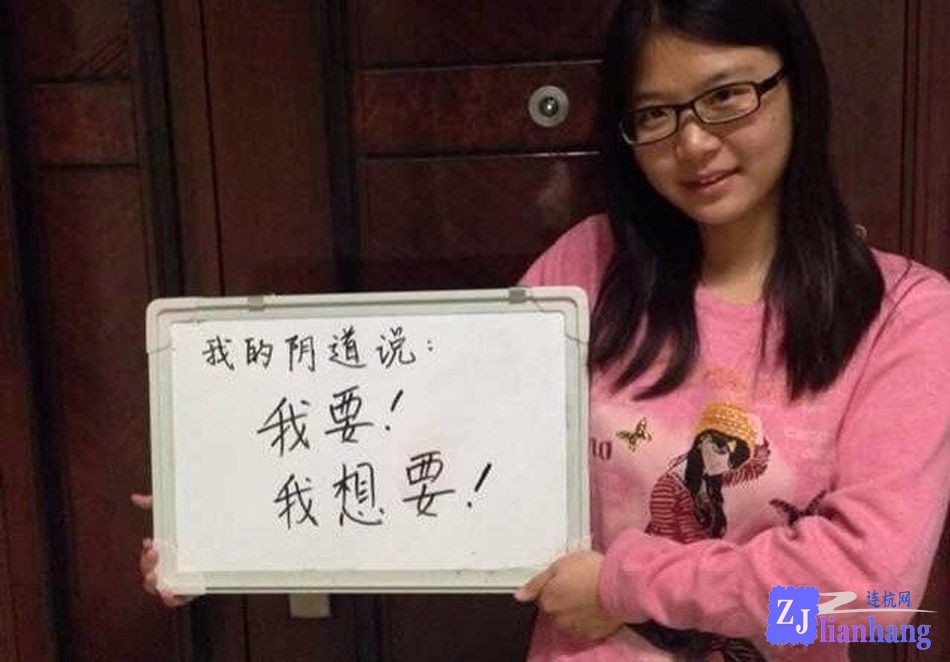 我的阴道说：
我要！
我想要！
连杭网
ZJlianhang